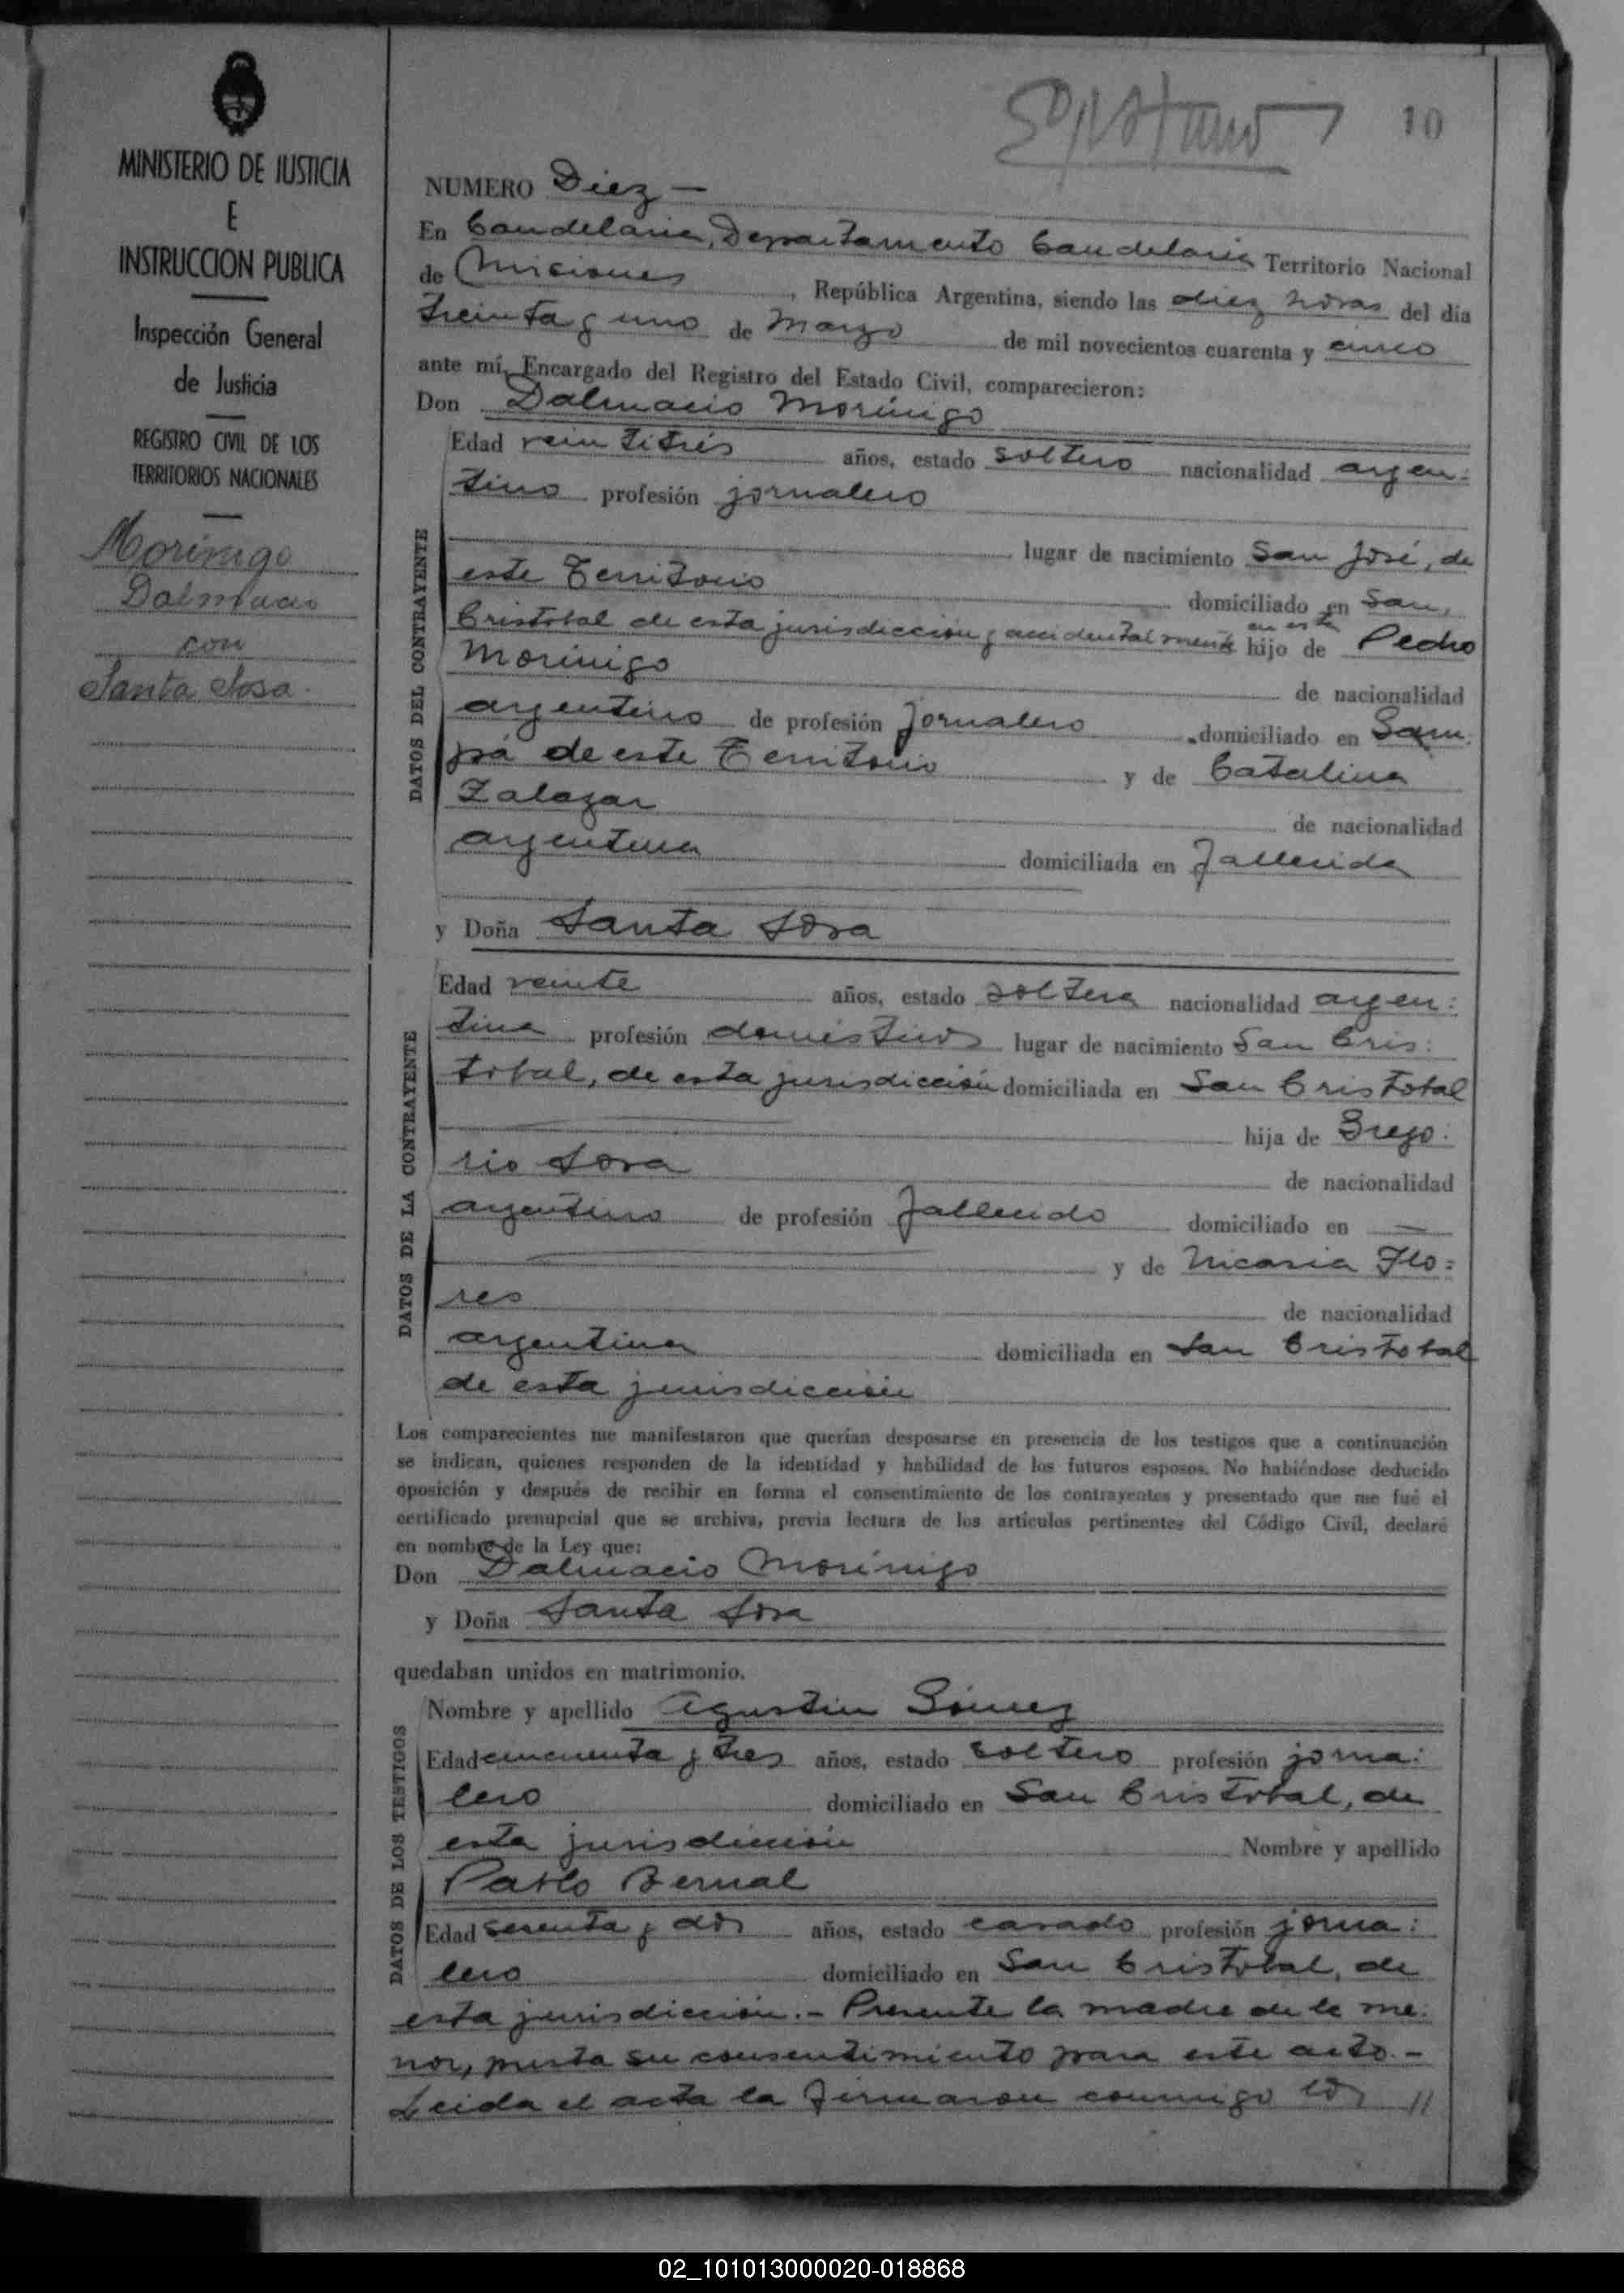 10
MINISTERIO DE JUSTICIA
E
INSTRUCCION PUBLICA
Inspección General
de Justicia
REGISTRO CIVIL DE LOS
TERRITORIOS NACIONALES
Morínigo
Dalmacio
con
Santa Sosa.
NUMERO Diez —
En Candelaria, Departamento Candelaria Territorio Nacional
de Misiones, República Argentina, siendo las diez horas del día
treinta y uno de Marzo de mil novecientos cuarenta y cinco
ante mí, Encargado del Registro del Estado Civil, comparecieron:
Don Dalmacio Morínigo
DATOS DEL CONTRAYENTE
Edad veintitrés años, estado soltero nacionalidad argen-
tino profesión jornalero
lugar de nacimiento San José, de
este Territorio domiciliado en San
en esta
Cristobal de esta jurisdicción y accidentalmente hijo de Pedro
Morinigo de nacionalidad
argentino de profesión Jornalero domiciliado en Sam-
pá de este Territorio y de Catalina
Zalazar de nacionalidad
argentina domiciliada en Fallecida
y Doña Santa Sosa
DATOS DE LA CONTRAYENTE
Edad veinte años, estado soltera nacionalidad argen-
tina profesión domésticos lugar de nacimiento San Cris-
tobal, de esta jurisdicción domiciliada en San Cristobal
hija de Grego-
rio Sosa de nacionalidad
argentino de profesión Fallecido domiciliado en —
y de Nicasia Flo-
res de nacionalidad
argentina domiciliada en San Cristobal
de esta jurisdicción
Los comparecientes me manifestaron que querían desposarse en presencia de los testigos que a continuación
se indican, quienes responden de la identidad y habilidad de los futuros esposos. No habiéndose deducido
oposición y después de recibir en forma el consentimiento de los contrayentes y presentado que me fué el
certificado prenupcial que se archiva, previa lectura de los artículos pertinentes del Código Civil, declaré
en nombre de la Ley que:
Don Dalmacio Morínigo
y Doña Santa Sosa
quedaban unidos en matrimonio.
DATOS DE LOS TESTIGOS
Nombre y apellido Agustin Gómez
Edad cincuenta y tres años, estado soltero profesión jorna-
lero domiciliado en San Cristobal, de
esta jurisdicción Nombre y apellido
Pablo Bernal
Edad sesenta y dos años, estado casado profesión jorna-
lero domiciliado en San Cristobal, de
esta jurisdicción.- Presente la madre de la me-
nor, presta su consentimiento para este acto.-
Leida el acta la firmaron conmigo los //
02_101013000020-018868